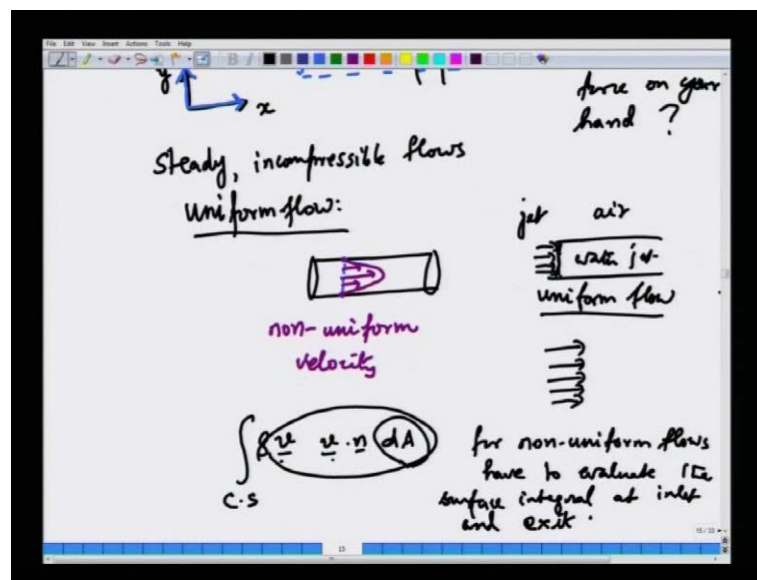 File Edit View Insert Actions Tools Help
y
x
force on your
hand ?
Steady, incompressible flows
uniform flow:
jet air
water jet
uniform flow
non-uniform
velocity
∫ ρ v v · n dA
C.S
for non-uniform flows
have to evaluate the
surface integral at inlet
and exit.
15/33
15